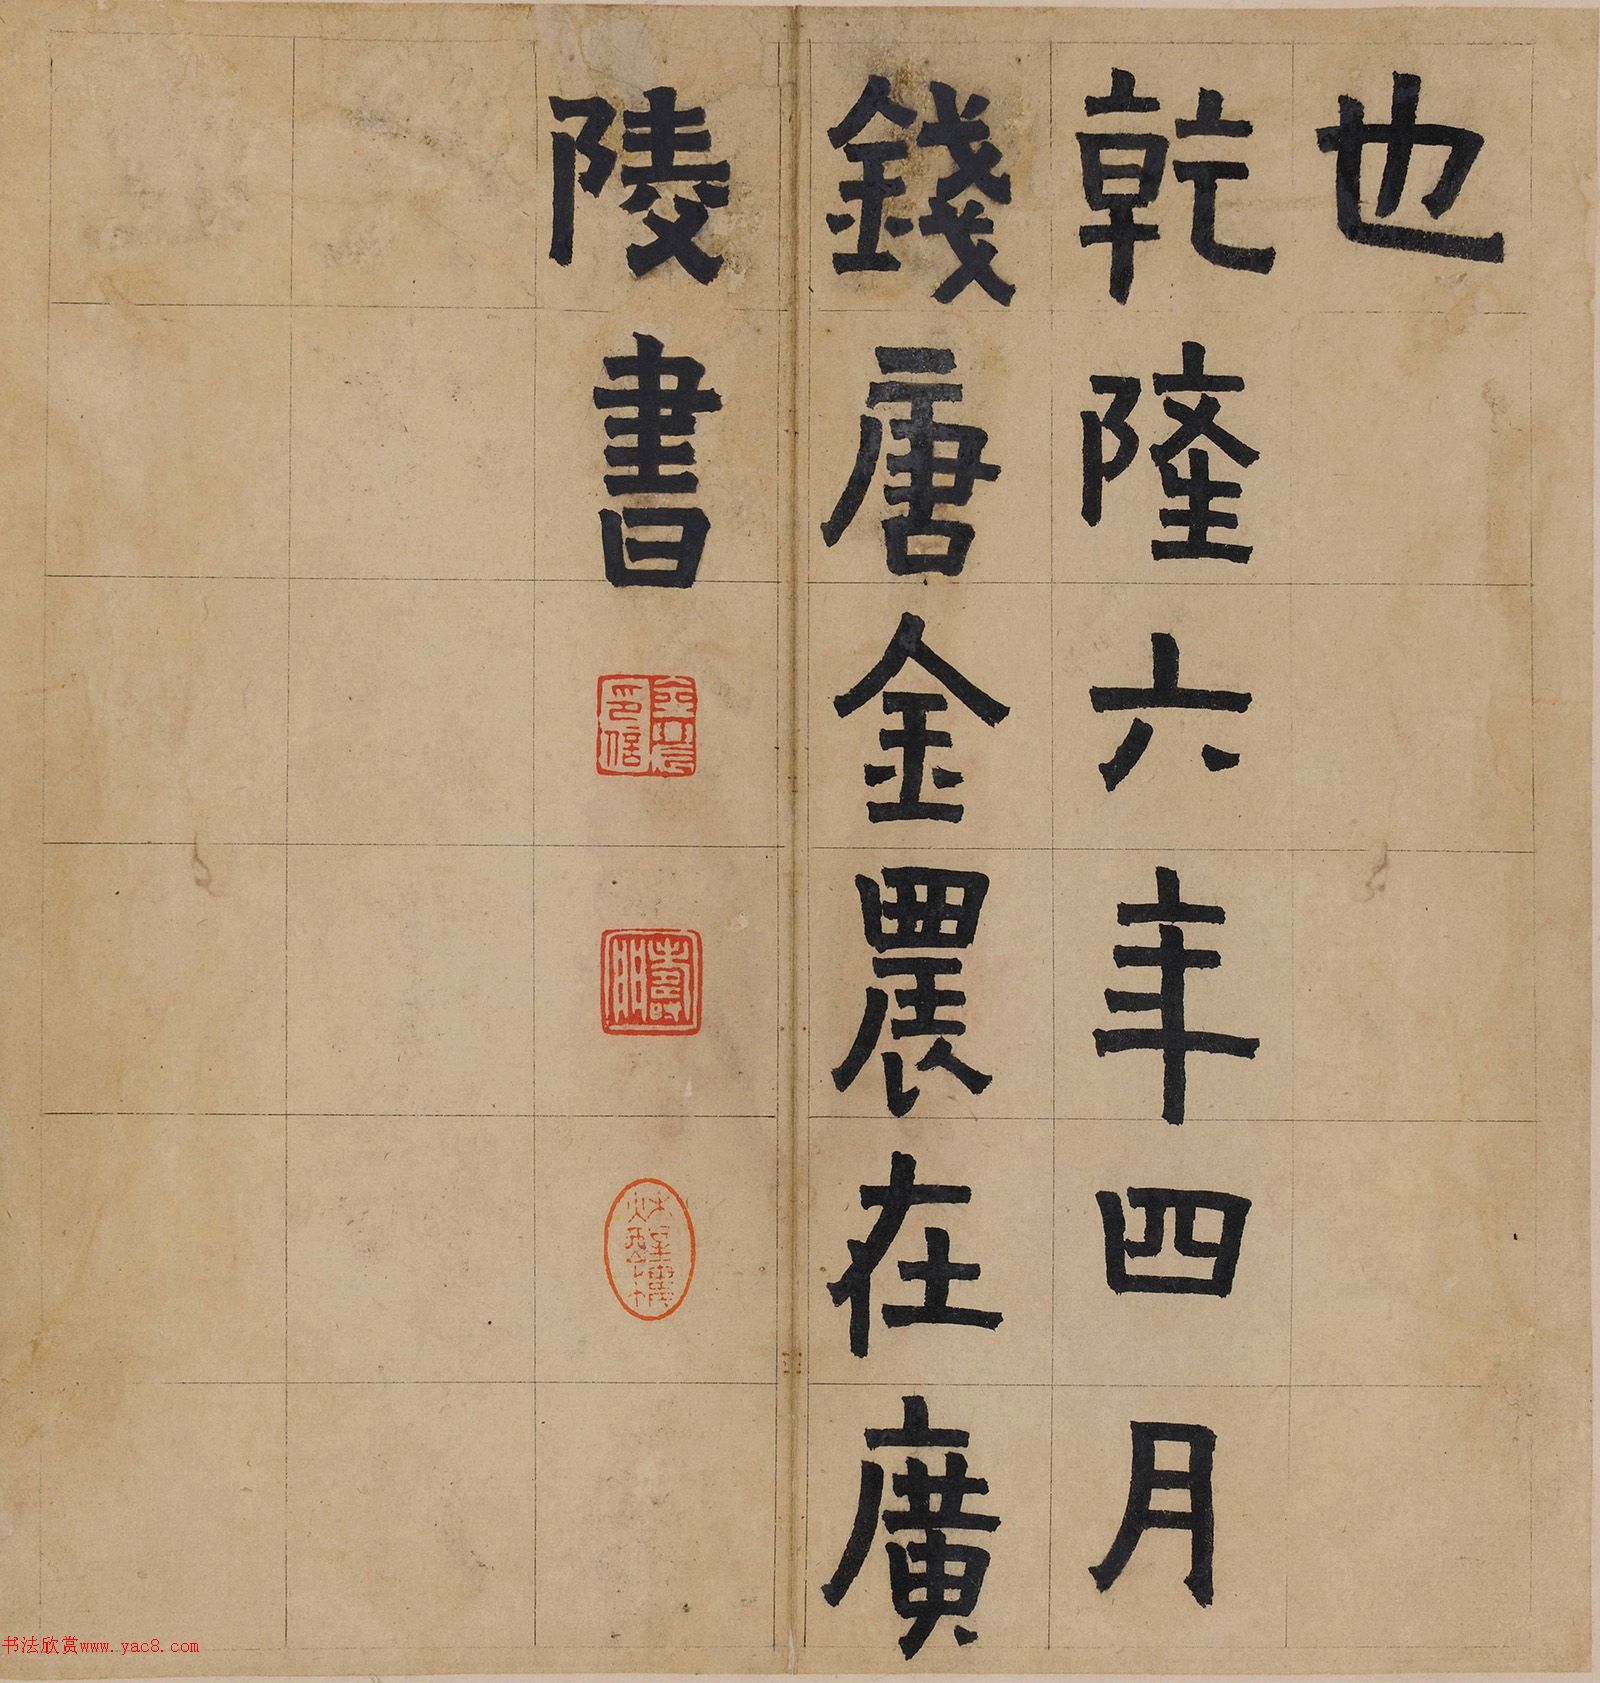 也
乾隆六年四月
錢唐金農在廣
陵書
金農印信
壽門
书法欣赏www.yac8.com